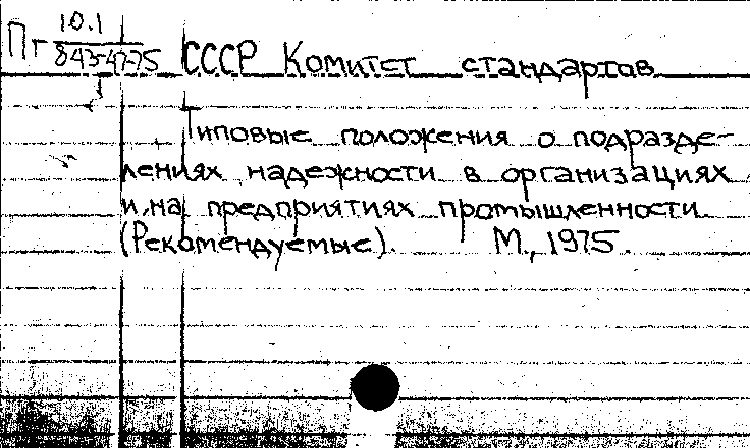 Пг 10.1
843-47-75 СССР Комитет стандартов
Типовые положения о подразде-
лениях надежности в организациях
и на предприятиях промышленности.
(Рекомендуемые). М., 1975.